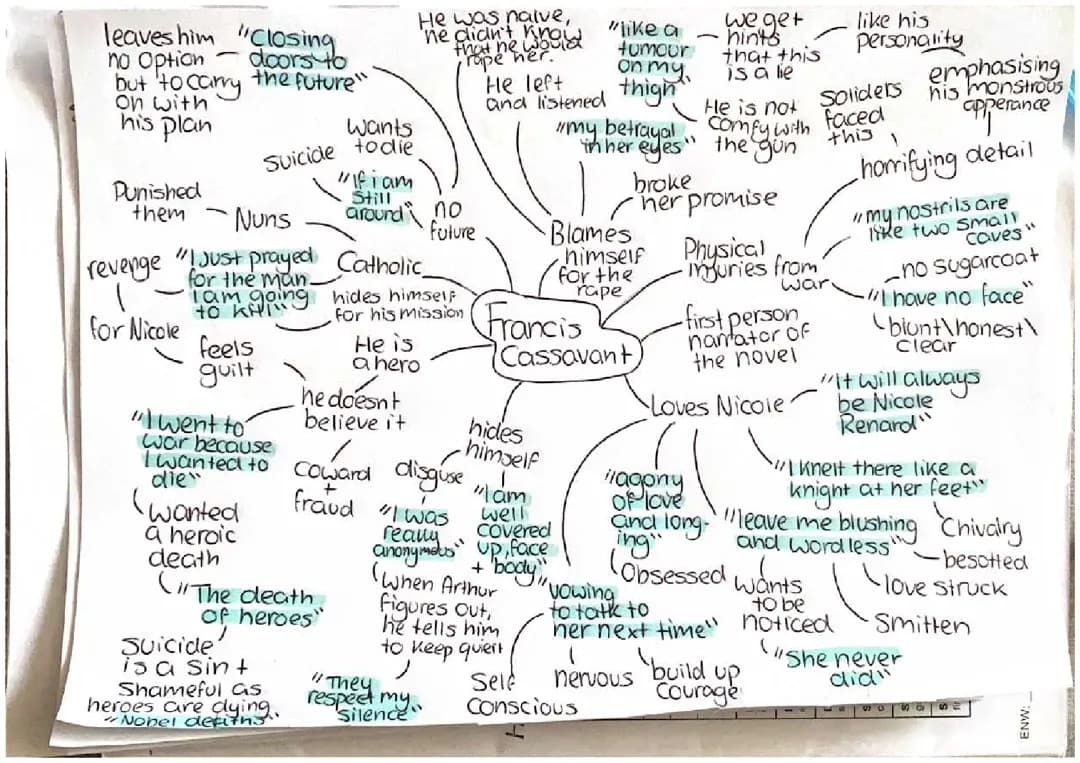 leaves him
no option
but to carry
on with
his plan
"Closing
doors to
the future"
He was naive,
he didn't know
that he would
rape her.
He left
and listened
"like a
tumour
on my
thigh"
we get
hints
that this
is a lie
like his
personality
emphasising
his monstrous
apperance
He is not
comfy with
the gun
soliders
faced
this
horrifying detail
"my betrayal
in her eyes"
broke
her promise
Blames
himself
for the
rape
wants
to die
Suicide
"If i am
still
around"
no
future
Punished
them
Nuns
Catholic
revenge
for Nicole
"I Just prayed
for the man
I am going
to kill"
hides himself
for his mission
Physical
injuries from
war
"my nostrils are
like two small
caves"
no sugarcoat
"I have no face"
blunt\honest\
clear
Francis
Cassavant
first person
narrator of
the novel
feels
guilt
He is
a hero
he doesnt
believe it
coward
+
fraud
"I went to
war because
I wanted to
die"
wanted
a heroic
death
"The death
of heroes"
Suicide
is a sin +
Shameful as
heroes are dying
"Nobel deaths"
hides
himself
disguse
"I was
really
anonymous"
"I am
well
covered
up, face
+ body"
when Arthur
figures out,
he tells him
to keep quiert
"They
respect my
silence"
Loves Nicole
"It will always
be Nicole
Renard"
"I knelt there like a
knight at her feet"
Chivalry
"agony
of love
and long-
ing"
Obsessed
"leave me blushing
and wordless"
besotted
love struck
Smitten
wants
to be
noticed
"She never
did"
"vowing
to talk to
her next time"
Self
conscious
nervous
build up
courage
ENW: